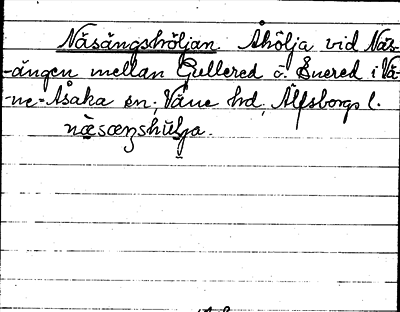 Näsängshöljan. Åhölja vid Näs-
-ängen mellan Gullered o. Enered i Vä-
-ne-Åsaka sn. Väne hd, Älfsborgs l.